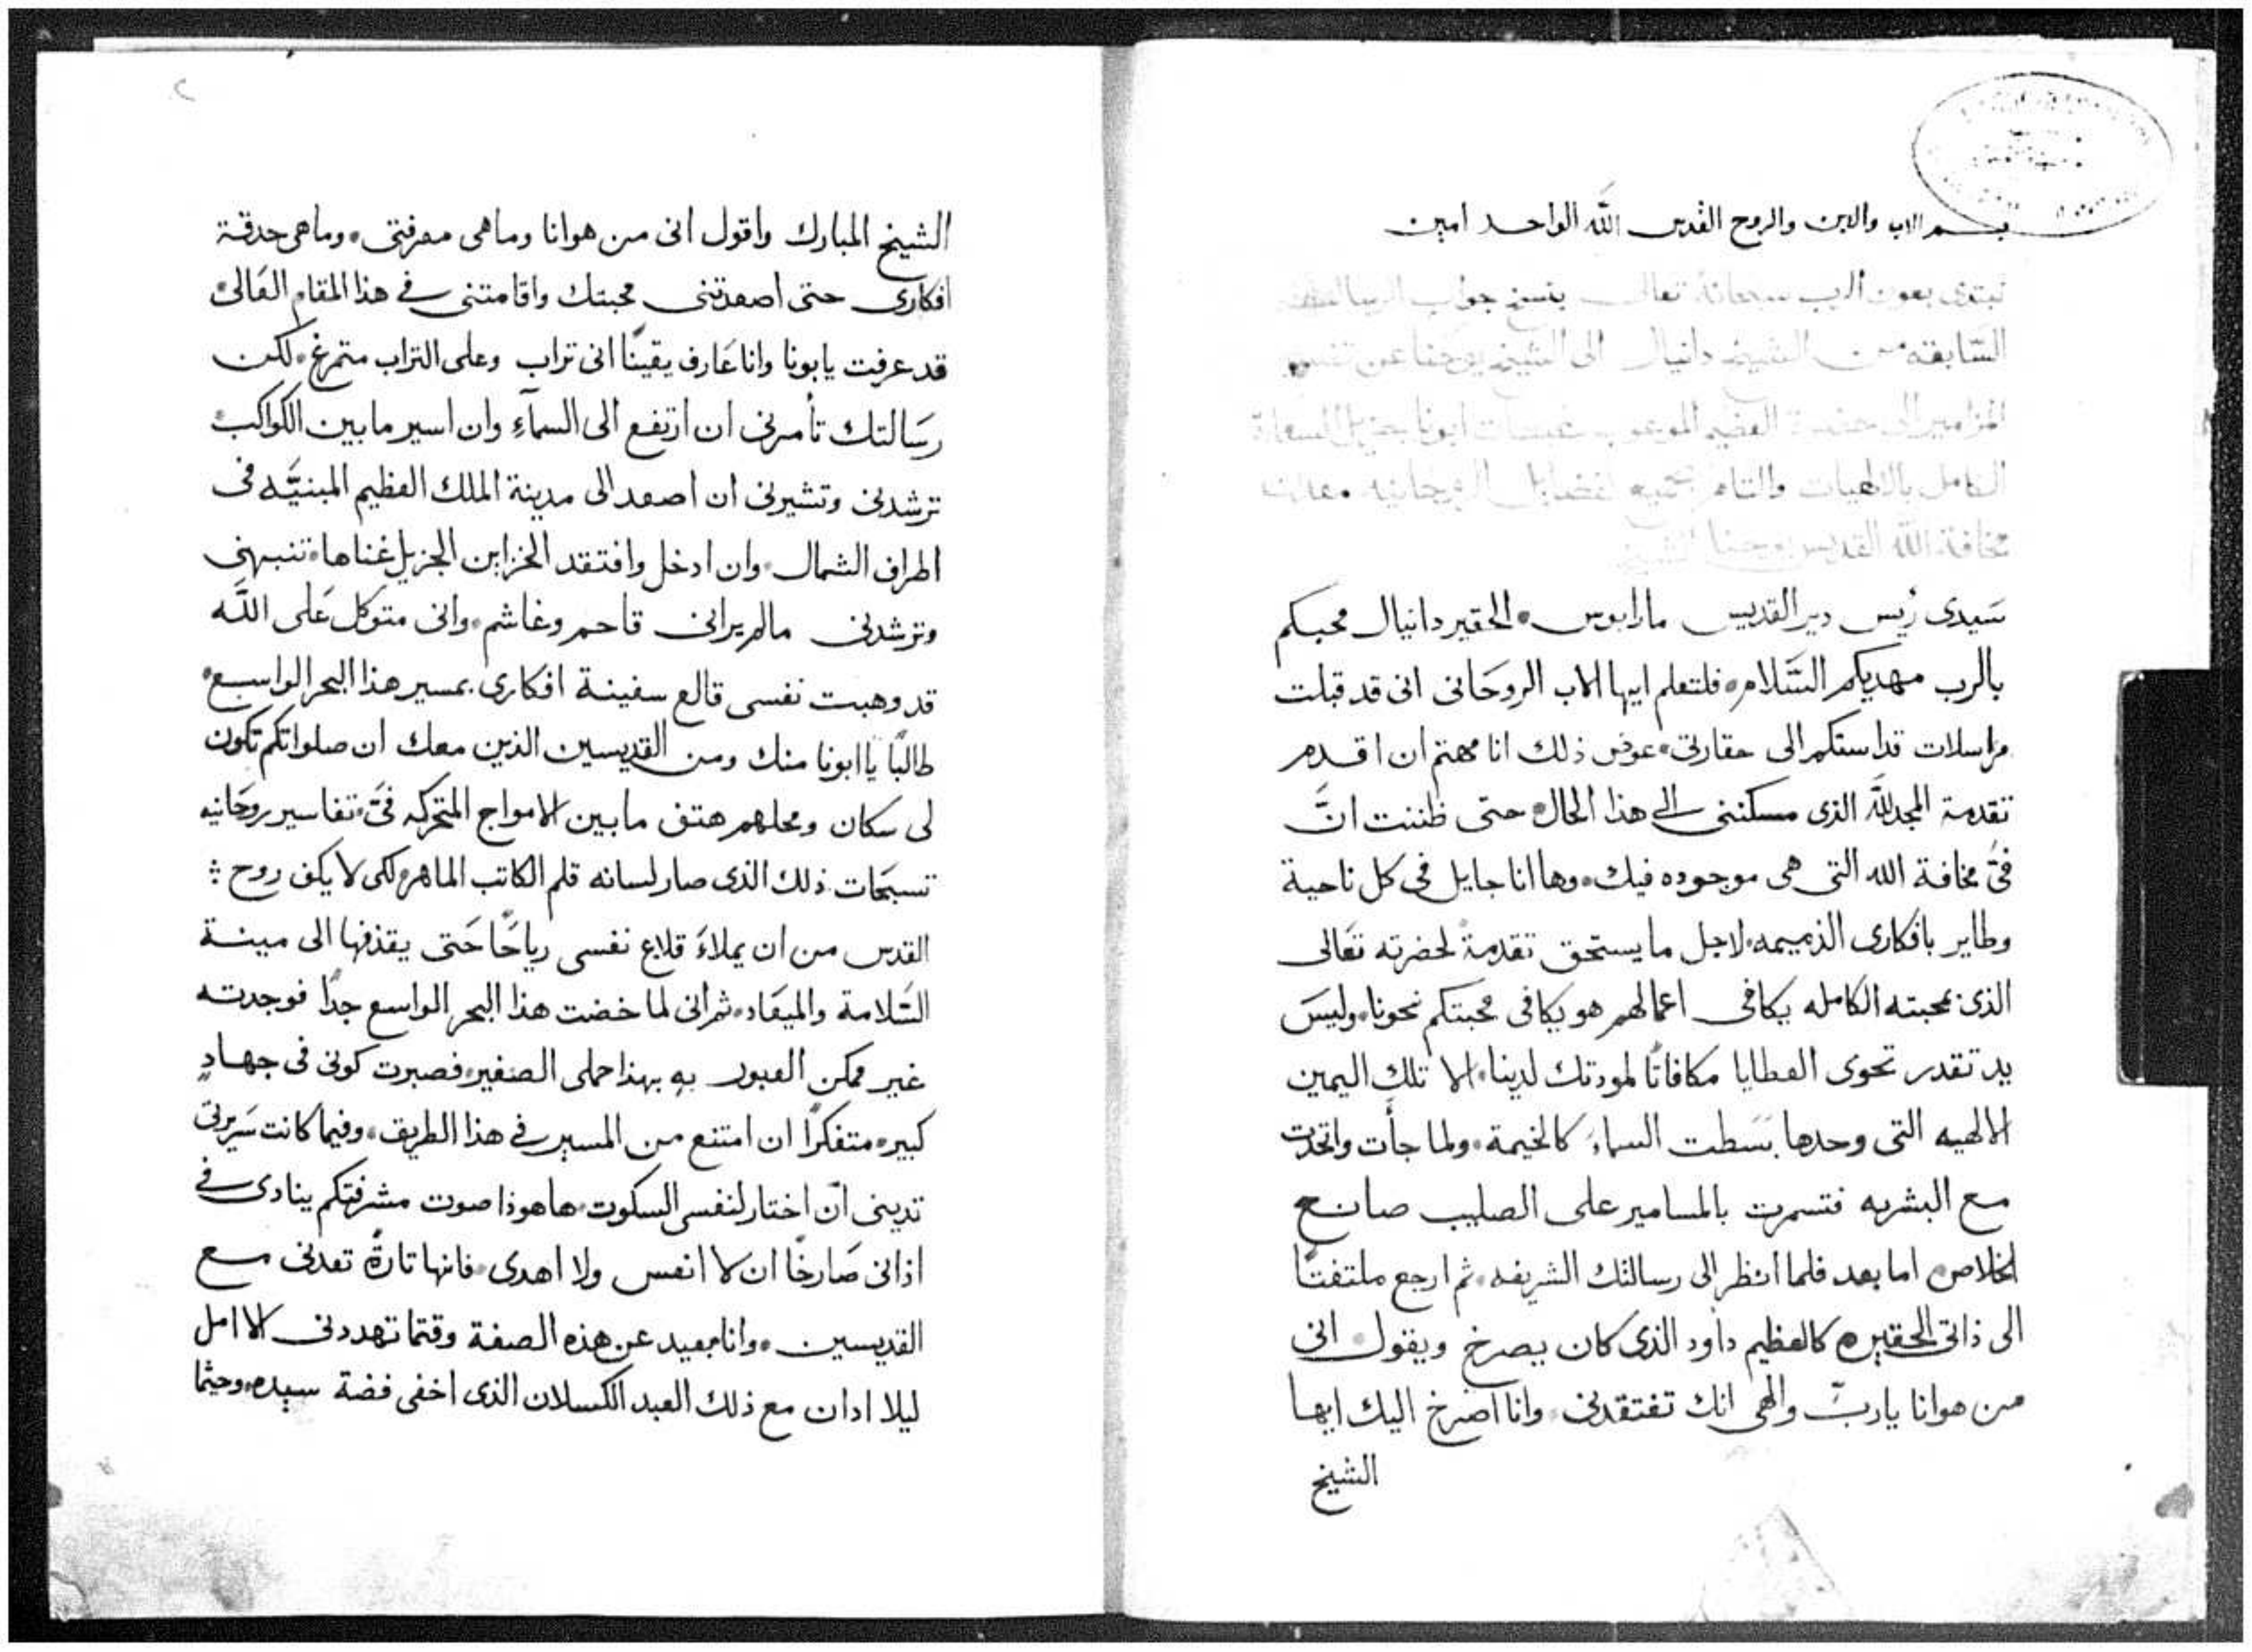 بسم الاب والابن والروح القدس الله الواحد امين
نبتدى بعون الرب سبحانه تعالى بنسخ جواب الرساله
السّابقه من الشيخ دانيال الى الشيخ يوحنا عن تفسير
المزامير الى حضرة العظيم ابونا
الكامل بالالهيات والتام بجميع الفضايل الروحانيه
مخافة الله القديس يوحنا الشيخ
سَيدى رُيس دير القديس مارابوس الحقير دانيال محبكم
بالرب مهديكم السَّلام فلتعلم ايها الاب الروحَانى انى قد قبلت
مراسلات قداستكم الى حقارتى عوض ذلك انا مهتم ان اقدم
تقدمة المجد لله الذى مسكننى الى هذا الحال حتى ظننت انَّ
فىَّ مخافة الله التى هى موجوده فيك وها انا جايل فى كل ناحية
وطاير بافكارى الذميمه لاجل ما يستحق تقدمةً لحضرته تعَالى
الذى بمحبته الكامله يكافى اعمالهم هو يكافى محبتكم نحونا وليسَ
يد تقدر تحوى العطايا مكافاتًا لمودتك لدينا الا تلك اليمين
الالهيه التى وحدها بسَطت السماء كالخيمة ولما جأت واتحدت
مع البشريه فتسمرت بالمسامير على الصليب صانع
الخلاص اما بعد فلما انظر الى رسالتك الشريفه ثم ارجع ملتفتًا
الى ذاتى الحقيره كالعظيم داود الذى كان يصرخ ويقول انى
من هو انا يا ربّ والهى انك تفتقدنى وانا اصرخ اليك ايها
الشيخ
٢
الشيخ المبارك واقول انى من هو انا وما هى معرفتى وما هى حدقة
افكارى حتى اصعدتنى محبتك واقامتنى فى هذا المقام العَالى
قد عرفت يابونا وانا عَارف يقينًا انى تراب وعلى التراب متمرغ لكن
رسَالتك تأمرنى ان ارتفع الى السمآءِ وان اسير ما بين الكواكب
ترشدنى وتشيرنى ان اصعد الى مدينة الملك العظيم المبنيَّه فى
اطراف الشمال وان ادخل وافتقد الخزاين الجزيل غناها تنبهنى
وترشدنى مالم يرانى قاحم وغاشم وانى متوكل عَلى اللَّه
قد وهبت نفسى قالع سفينة افكارى بمسير هذا البحر الواسع
طالبًا يا ابونا منك ومن القديسين الذين معك ان صلواتكم تكون
لى سَكان ومحلهم هتف ما بين الامواج المتحركه فىَّ تفاسير روحَانيه
تسبحَات ذلك الذى صار لسانه قلم الكاتب الماهر لكى لا يكف روح
القدس من ان يملاءَ قلاع نفسى رياحًا حَتى يقذفها الى مينة
السَّلامة والميعَاد ثم انى لما خضت هذا البحر الواسع جدًا فوجدته
غير ممكن العبور بهِ بهذا حملى الصغير فصبرت كونى فى جهادٍ
كبير متفكرًا ان امتنع من المسير فى هذا الطريق وفيما كانت سَريرتى
تدينى ان اختار لنفسى السكوت ها هوذا صوت مشرفتكم ينادى فى
اذانى صَارخًا ان لا انعس ولا اهدى فانها تارةً تعدنى مع
القديسين وانا بعيد عن هذه الصفة وقتما تهددنى الاامل
ليلا ادان مع ذلك العبد الكسلان الذى اخفى فضة سيده وحيثما